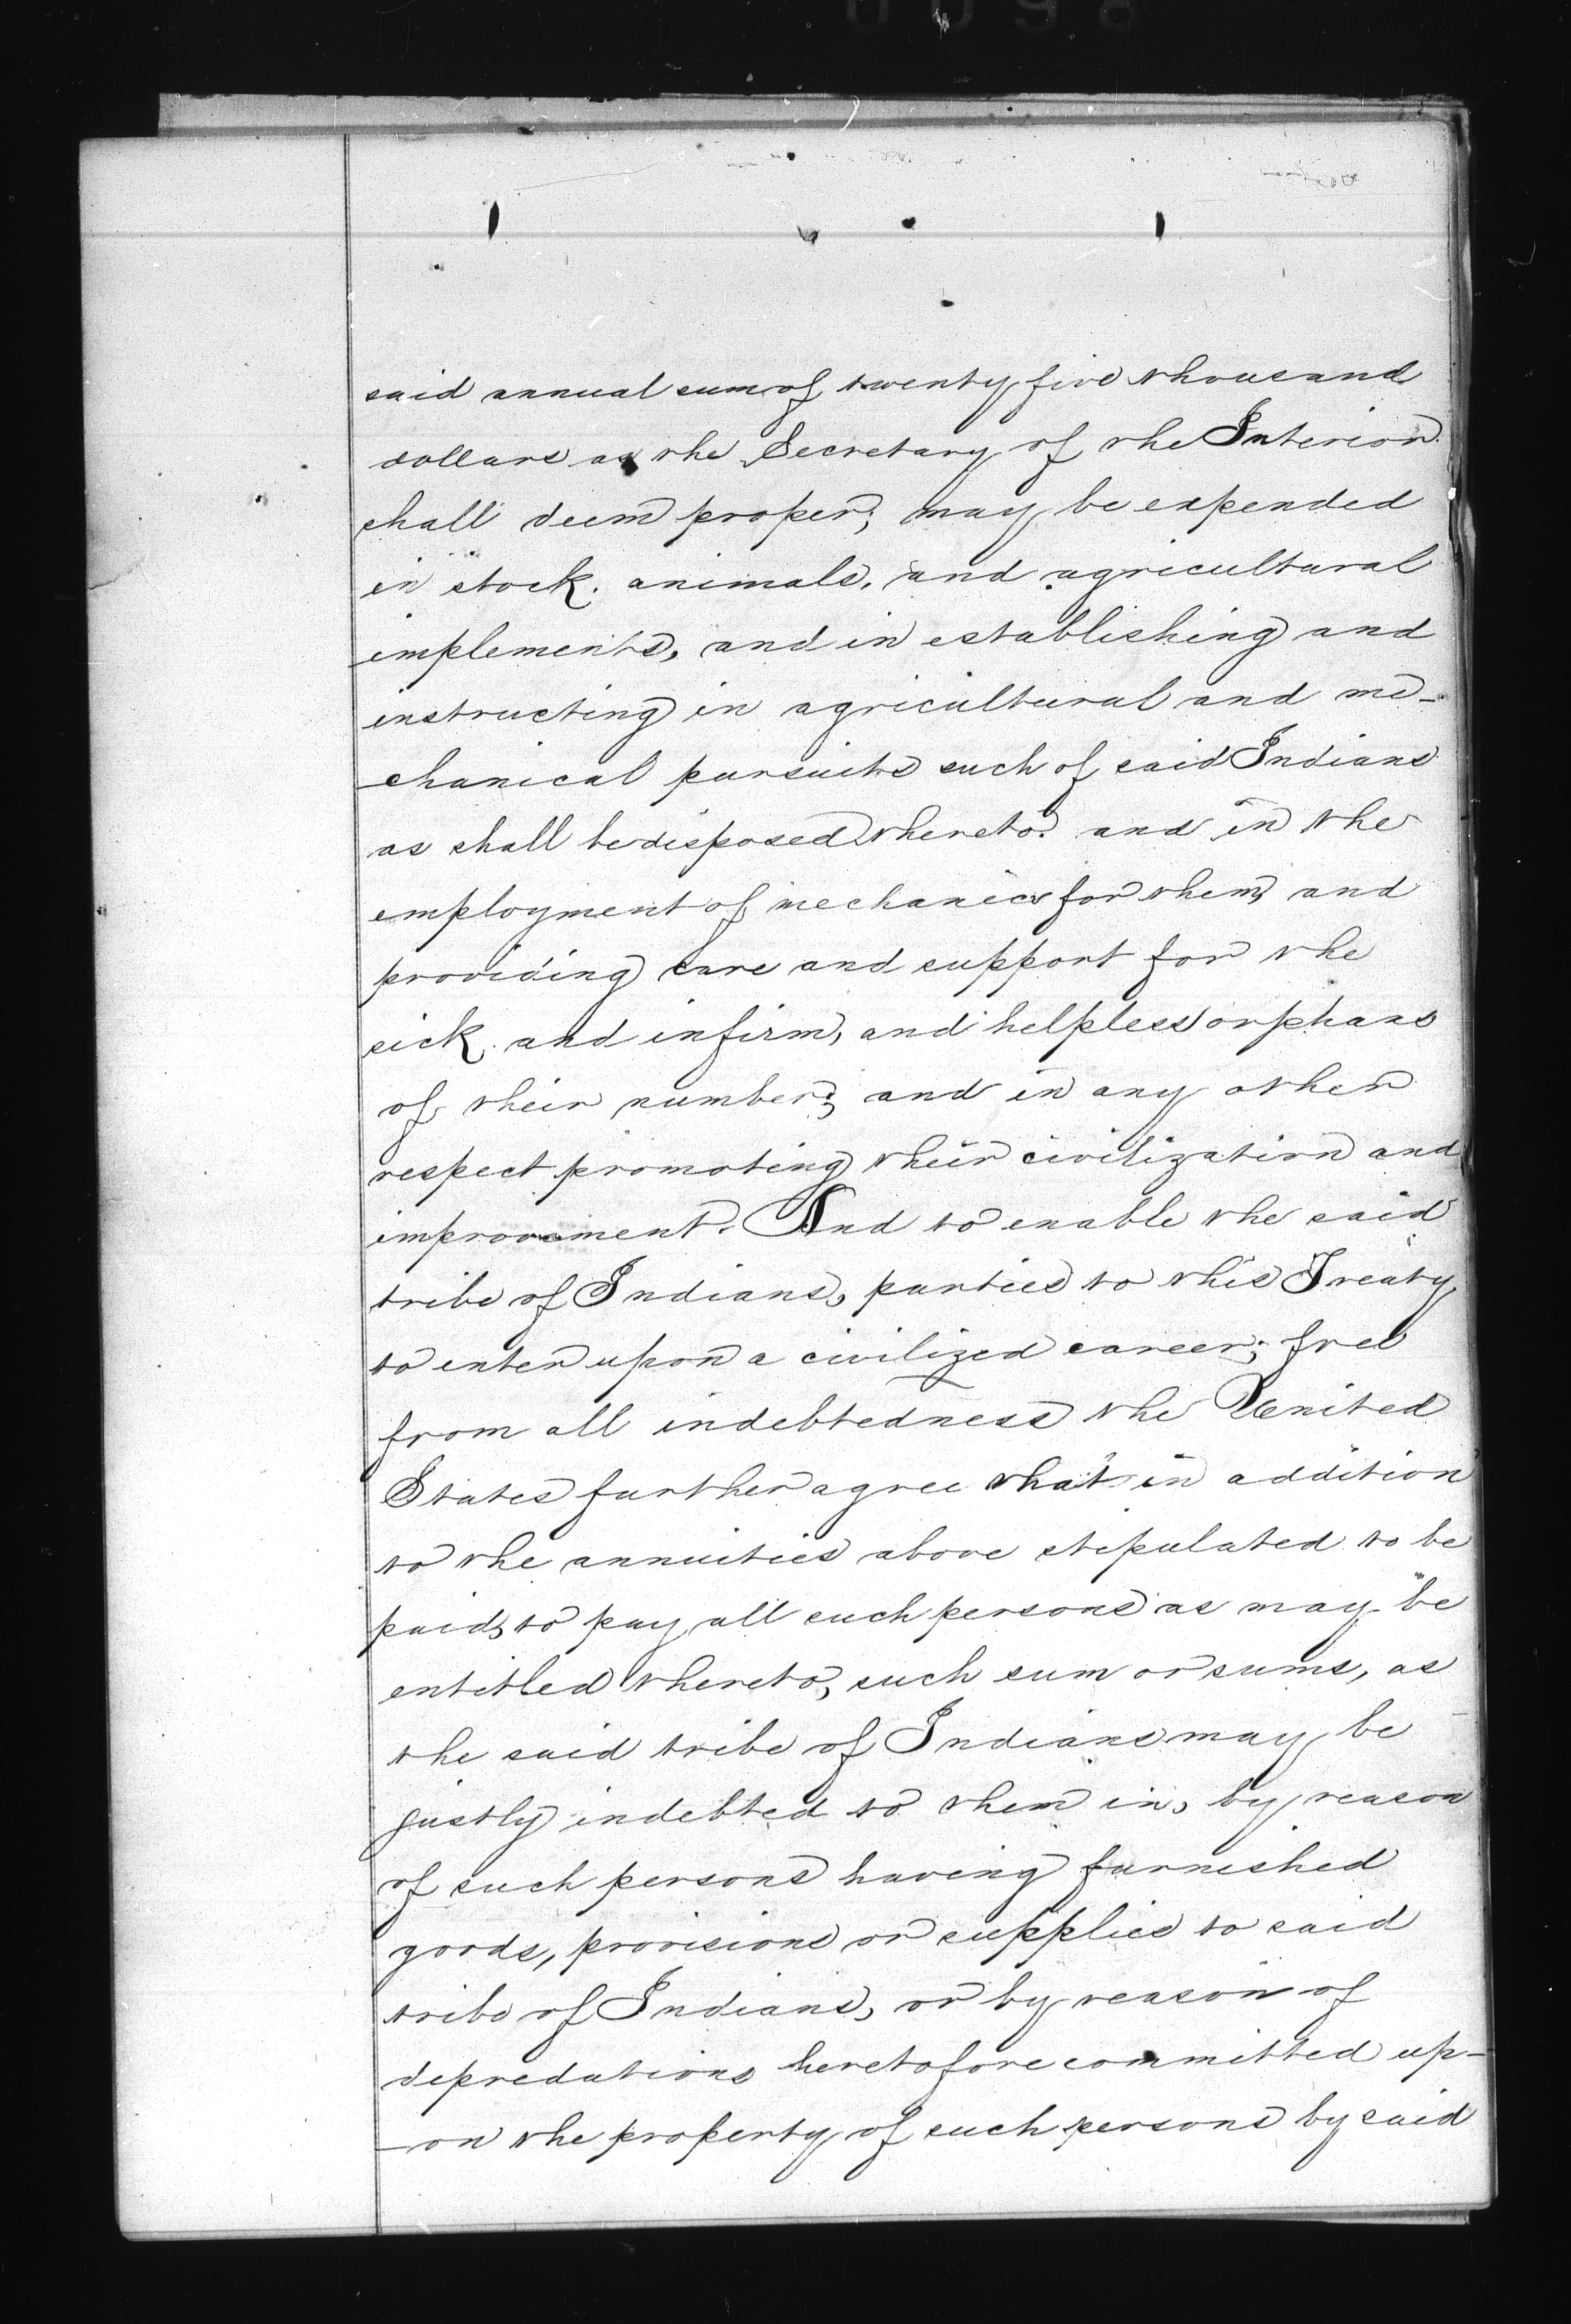 said annual sum of twenty five thousand
dollars as the Secretary of the Interior
shall deem proper; may be expended
in stock. animals, and agricultural
implements, and in establishing and
instructing in agricultural and me-
-chanical pursuits such of said Indians
as shall be disposed thereto. and in the
employment of mechanics for them, and
providing care and support for the
sick. and infirm, and helpless orphans
of their number; and in any other
respect promoting their civilization and
improvement. And to enable the said
tribe of Indians, parties to this Treaty
to enter upon a civilized career; free
from all indebtedness the United
States further agree that in addition
to the annuities above stipulated to be
paid, to pay all such persons as may be
entitled thereto, such sum or sums, as
the said tribe of Indians may be
justly indebted to them in, by reason
of such persons having furnished
goods, provisions or supplies to said
tribe of Indians, or by reason of
depredations heretofore committed up-
-on the property of such persons by said